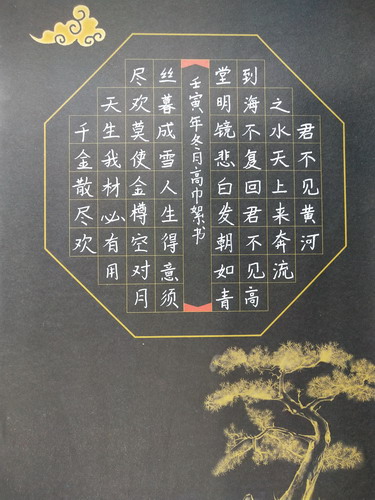 君不见黄河
之水天上来奔流
到海不复回君不见高
堂明镜悲白发朝如青
壬寅年冬月高巾絮书
丝暮成雪人生得意须
尽欢莫使金樽空对月
天生我材必有用
千金散尽欢